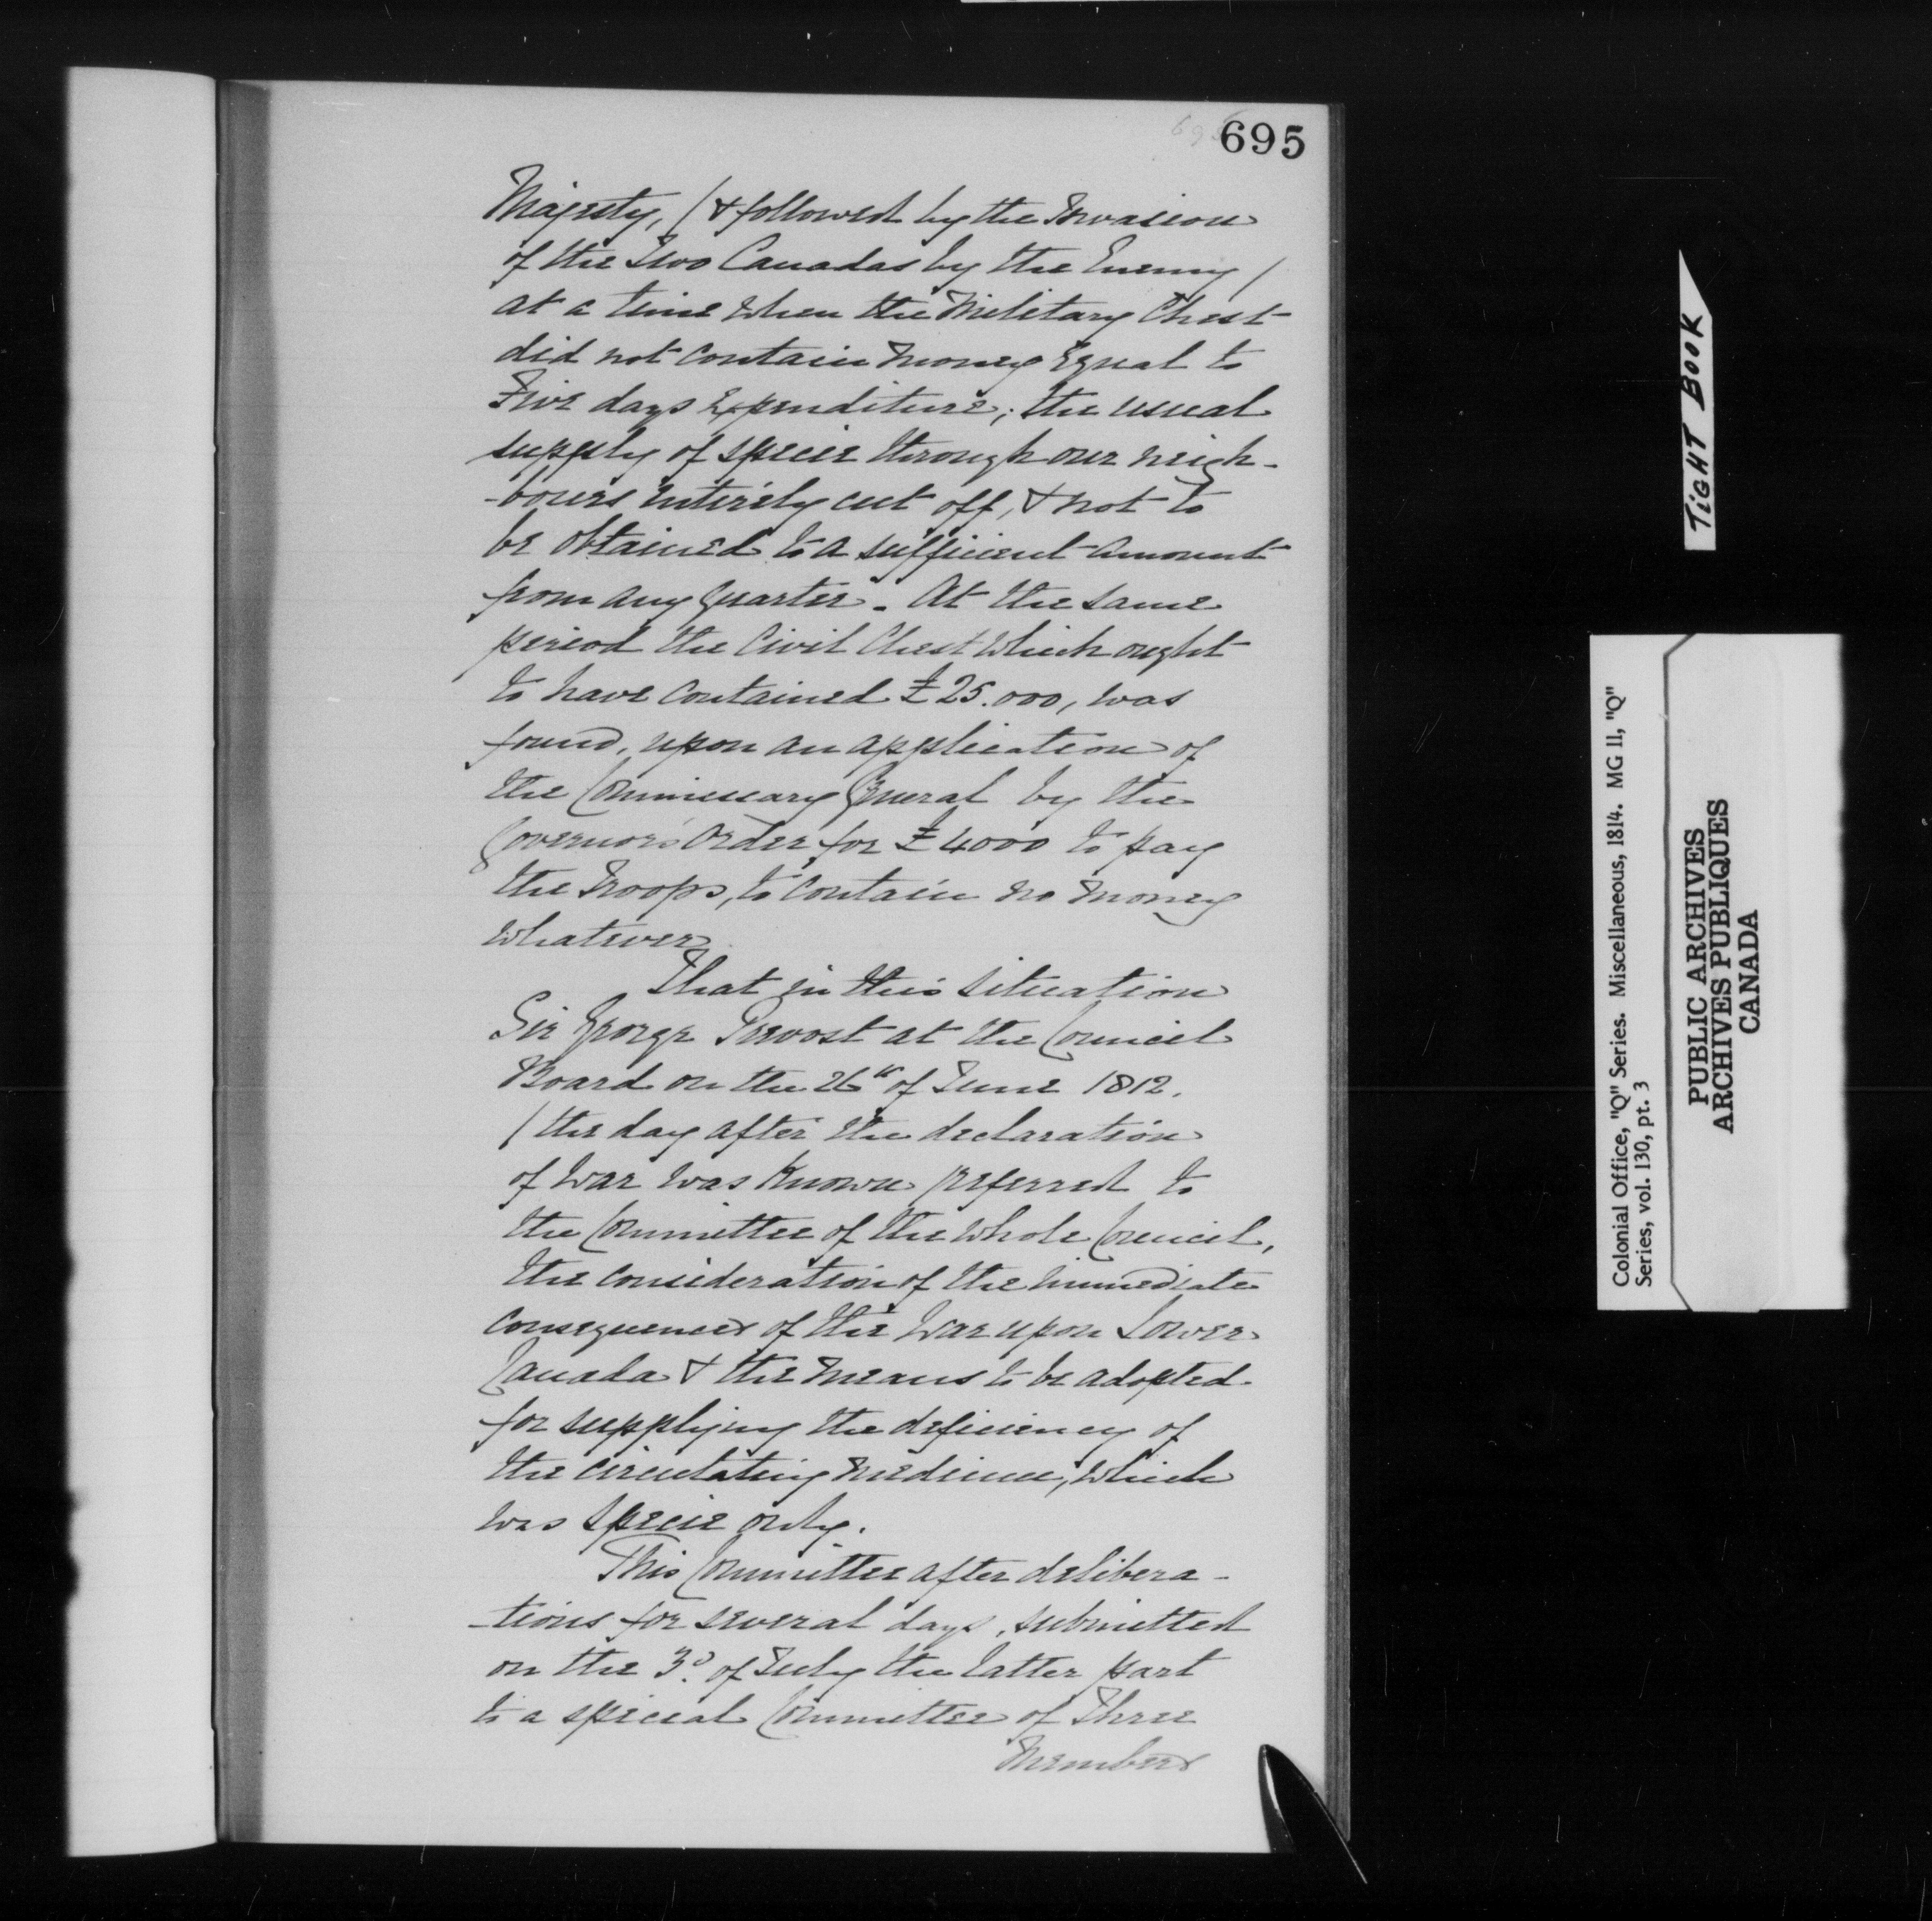 695
Majesty, (& followed by the Invasion
of the Two Canadas by the Enemy/
at a time when the Military Chest
did not contain money Equal to
Five days Expenditure; the usual
supply of specie through our neigh-
-bours entirely cut off, & not to
be obtained to a sufficient amount
from any Quarter. At the same
period the Civil Chest which ought
to have contained £25.000, was
found, upon an application of
the Commissary General by the
Governor's Order for £4000 to pay
the Troops, to contain no money
whatever.
That in this situation
Sir George Prevost at the Council
Board on the 26th of June 1812.
/ the day after the declaration
of War was known /referred to
the Committee of the whole Council,
the consideration of the immediate
consequences of the War upon Lower
Canada & the means to be adopted
for supplying the deficiency of
the circulating medium, which
was specie only.
This Committee after delibera-
-tions for several days, submitted
on the 3d. of July the latter part
to a special Committee of Three
Members
TIGHT BOOK
Colonial Office, "Q" Series. Miscellaneous, 1814. MG 11, "Q"
Series, vol. 130, pt. 3
PUBLIC ARCHIVES
ARCHIVES PUBLIQUES
CANADA